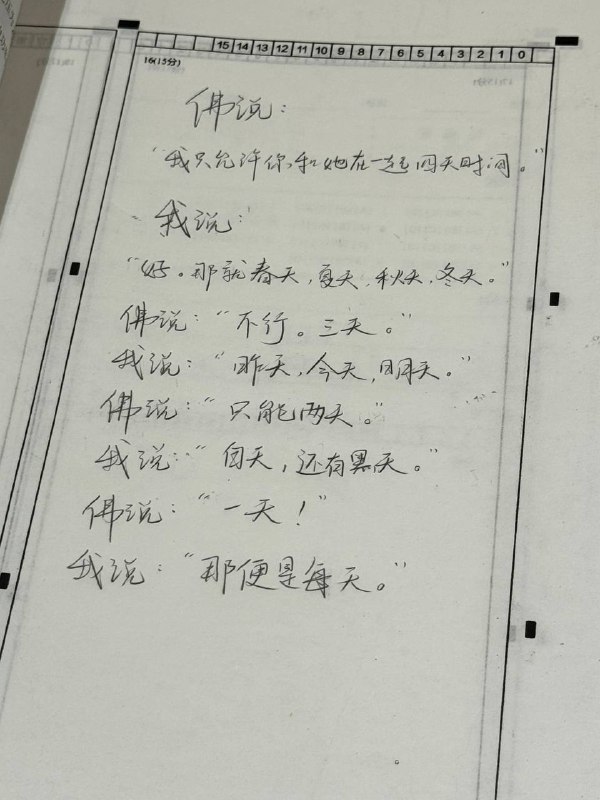 15 14 13 12 11 10 9 8 7 6 5 4 3 2 1 0
16(15分)
佛说：
“我只允许你和她在一起四天时间。”
我说：
“好。那就春天，夏天，秋天，冬天。”
佛说：“不行。三天。”
我说：“昨天，今天，明天。”
佛说：“只能两天。”
我说：“白天，还有黑天。”
佛说：“一天！”
我说：“那便是每天。”